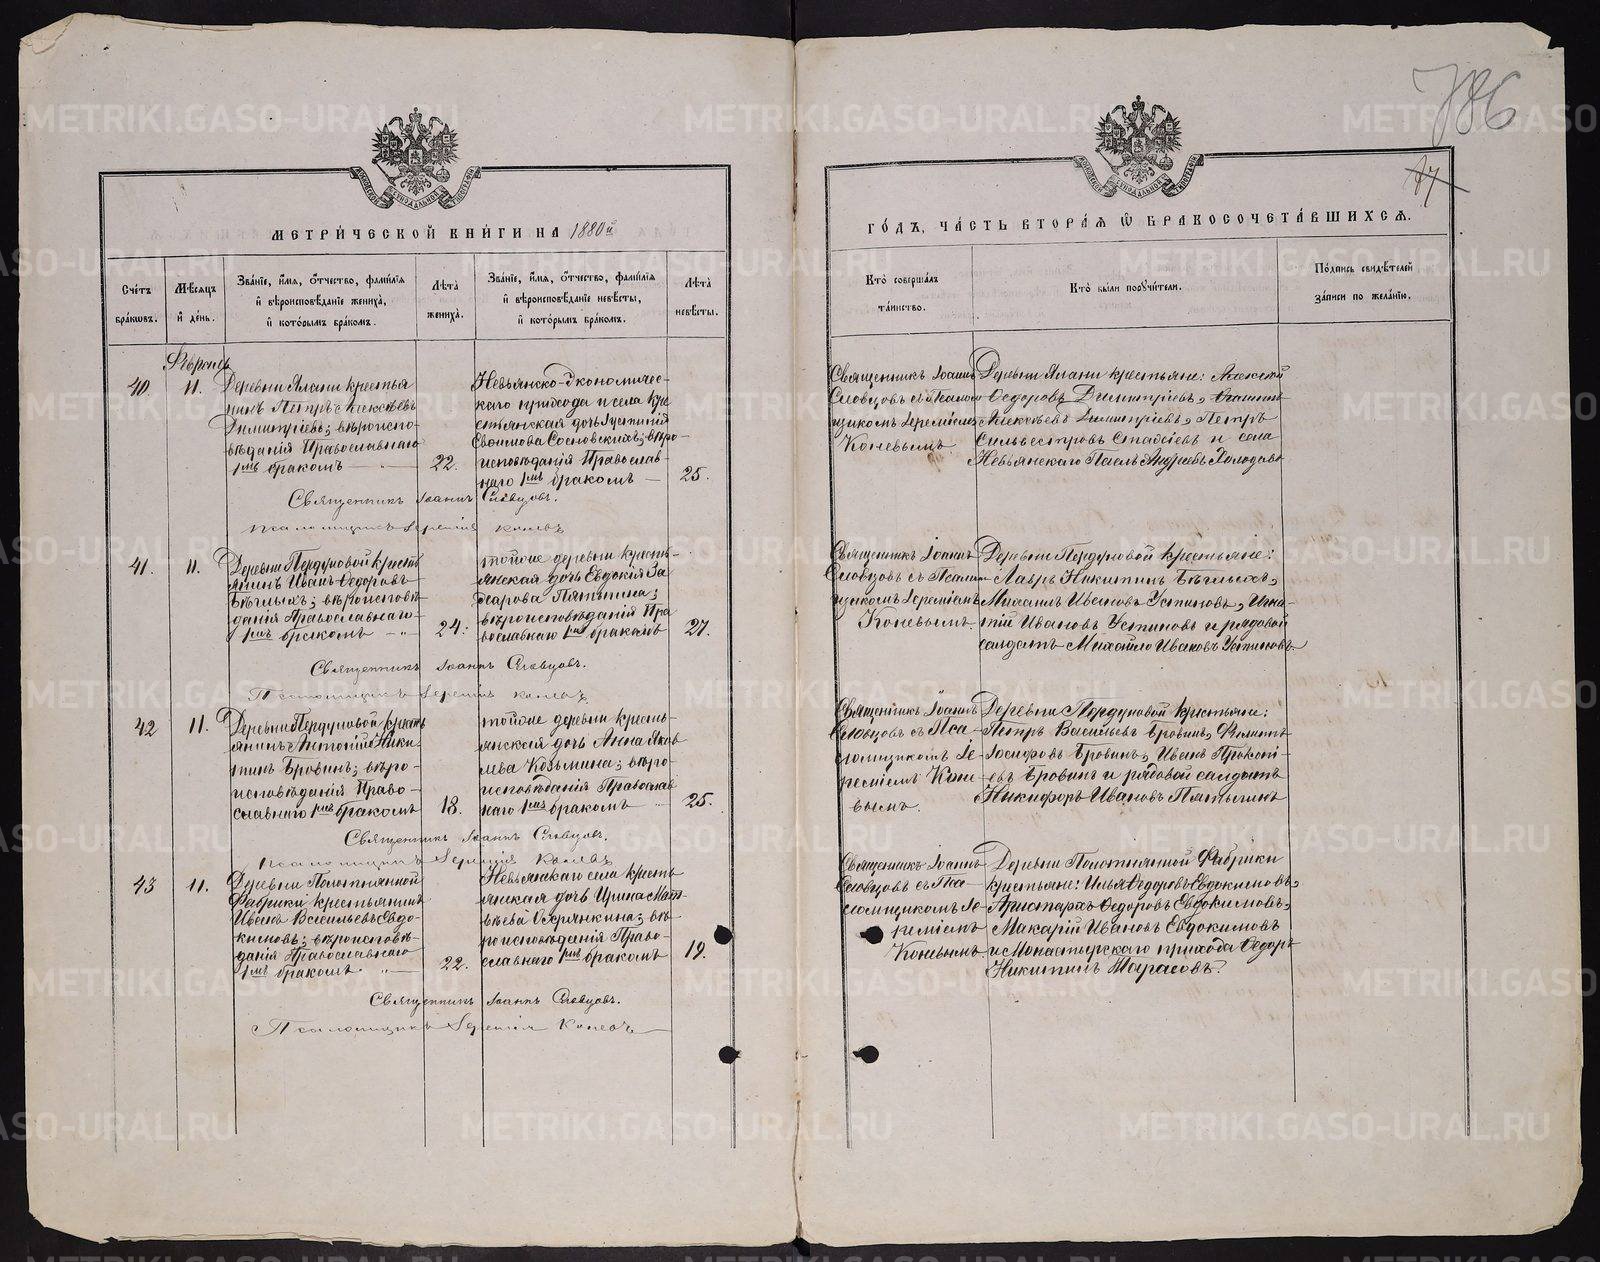 786
17
МОСКОВСКОЙ СѴНОДАЛЬНОЙ ТИПОГРАФІИ
МЕТРИ́ЧЕСКОЙ КНИ́ГИ НА 1880й
ГО́ДЪ, ЧА́СТЬ ВТОРА́Я Ѿ БРАКОСОЧЕТА́ВШИХСЯ.
Сче́тъ бра́кѡвъ.
Мѣсяцъ и҆ де́нь.
Зва́нїе, и҆́мя, ѻ҆́тчество, фамилїя
и҆ вѣроисповѣданїе жениха̀,
и҆ кото́рымъ бра́комъ.
Лѣта̀ жениха̀.
Зва́нїе, и҆́мя, ѻ҆́тчество, фамилїя
и҆ вѣроисповѣданїе невѣсты,
и҆ кото́рымъ бра́комъ.
Лѣта̀ невѣсты.
Кто̀ соверша́лъ
та́инство.
Кто̀ бы́ли пору́чители.
По́дпись свидѣтелей
за́писи по жела́нїю.
Февраль
40
11.
Деревни Ялани крестья
нинъ Петръ Алексѣевъ
Димитріевъ; вѣроиспо-
вѣданія Православнаго
1мъ бракомъ
22.
Невьянско-Экономичес-
каго прихода и села кре
стьянская дочь Іустинія
Евѳимова Сосновскихъ; вѣро-
исповѣданія Православ-
наго 1мъ бракомъ —
25.
Священникъ Іоаннъ
Словцовъ съ Псалом-
щикомъ Іереміемъ
Коневымъ
Деревни Ялани крестьяне: Алексѣй
Ѳедоровъ Димитріевъ,
Алексѣевъ Димитріевъ, Петръ
Сильвестровъ и села
Невьянскаго Павелъ Андреевъ Холодовъ
Священникъ Іоаннъ Словцовъ.
Псаломщикъ Іеремія Коневъ
41.
11.
Деревни Пердуновой кресть
янинъ Иванъ Ѳедоровъ
Бѣглыхъ; вѣроисповѣ-
данія Православнаго
1мъ бракомъ
24.
тойже деревни кресть-
янская дочь Евдокія За
харова Пятыгина;
вѣроисповѣданія Пра
вославнаго 1мъ бракомъ
27.
Священникъ Іоаннъ
Словцовъ съ Псалом-
щикомъ Іереміемъ
Коневымъ
Деревни Пердуновой крестьяне:
Лавръ Никитинъ Бѣглыхъ,
Михаилъ Ивановъ Устиновъ, Игна-
тій Ивановъ Устиновъ и рядовой
солдатъ Михайло Ивановъ Устиновъ
Священникъ Іоаннъ Словцовъ.
Псаломщикъ Іеремія Коневъ
42
11.
Деревни Пердуновой кресть
янинъ Антоній Ники-
тинъ Бровинъ; вѣро-
исповѣданія Право-
славнаго 1мъ бракомъ
18.
тойже деревни кресть-
янская дочь Анна Яков
лева Козьмина; вѣро-
исповѣданія Православ
наго 1мъ бракомъ
25.
Священникъ Іоаннъ
Словцовъ съ Пса-
ломщикомъ Іе-
реміемъ Коне-
вымъ.
Деревни Пердуновой крестьяне:
Петръ Васильевъ Бровинъ, Филиппъ
Іосифовъ Бровинъ, Иванъ Прокопі-
евъ Бровинъ и рядовой солдатъ
Никифоръ Ивановъ Пятыгинъ
Священникъ Іоаннъ Словцовъ.
Псаломщикъ Іеремія Коневъ
43
11.
Деревни Полотнянной
Фабрики крестьянинъ
Иванъ Васильевъ Евдо-
кимовъ; вѣроисповѣ-
данія Православнаго
1мъ бракомъ
22.
Невьянскаго села кресть
янская дочь Ирина Мат
вѣева вѣ-
роисповѣданія Право-
славнаго 1мъ бракомъ
19.
Священникъ Іоаннъ
Словцовъ съ Пса-
ломщикомъ Іе-
реміемъ
Коневымъ
Деревни Полотнянной Фабрики
крестьяне: Илья Ѳедоровъ Евдокимовъ,
Аристархъ Ѳедоровъ Евдокимовъ,
Макарій Ивановъ Евдокимовъ
и Монастырскаго прихода Ѳедоръ
Никитинъ Тарасовъ.
Священникъ Іоаннъ Словцовъ.
Псаломщикъ Іеремія Коневъ
METRIKI.GASO-URAL.RU